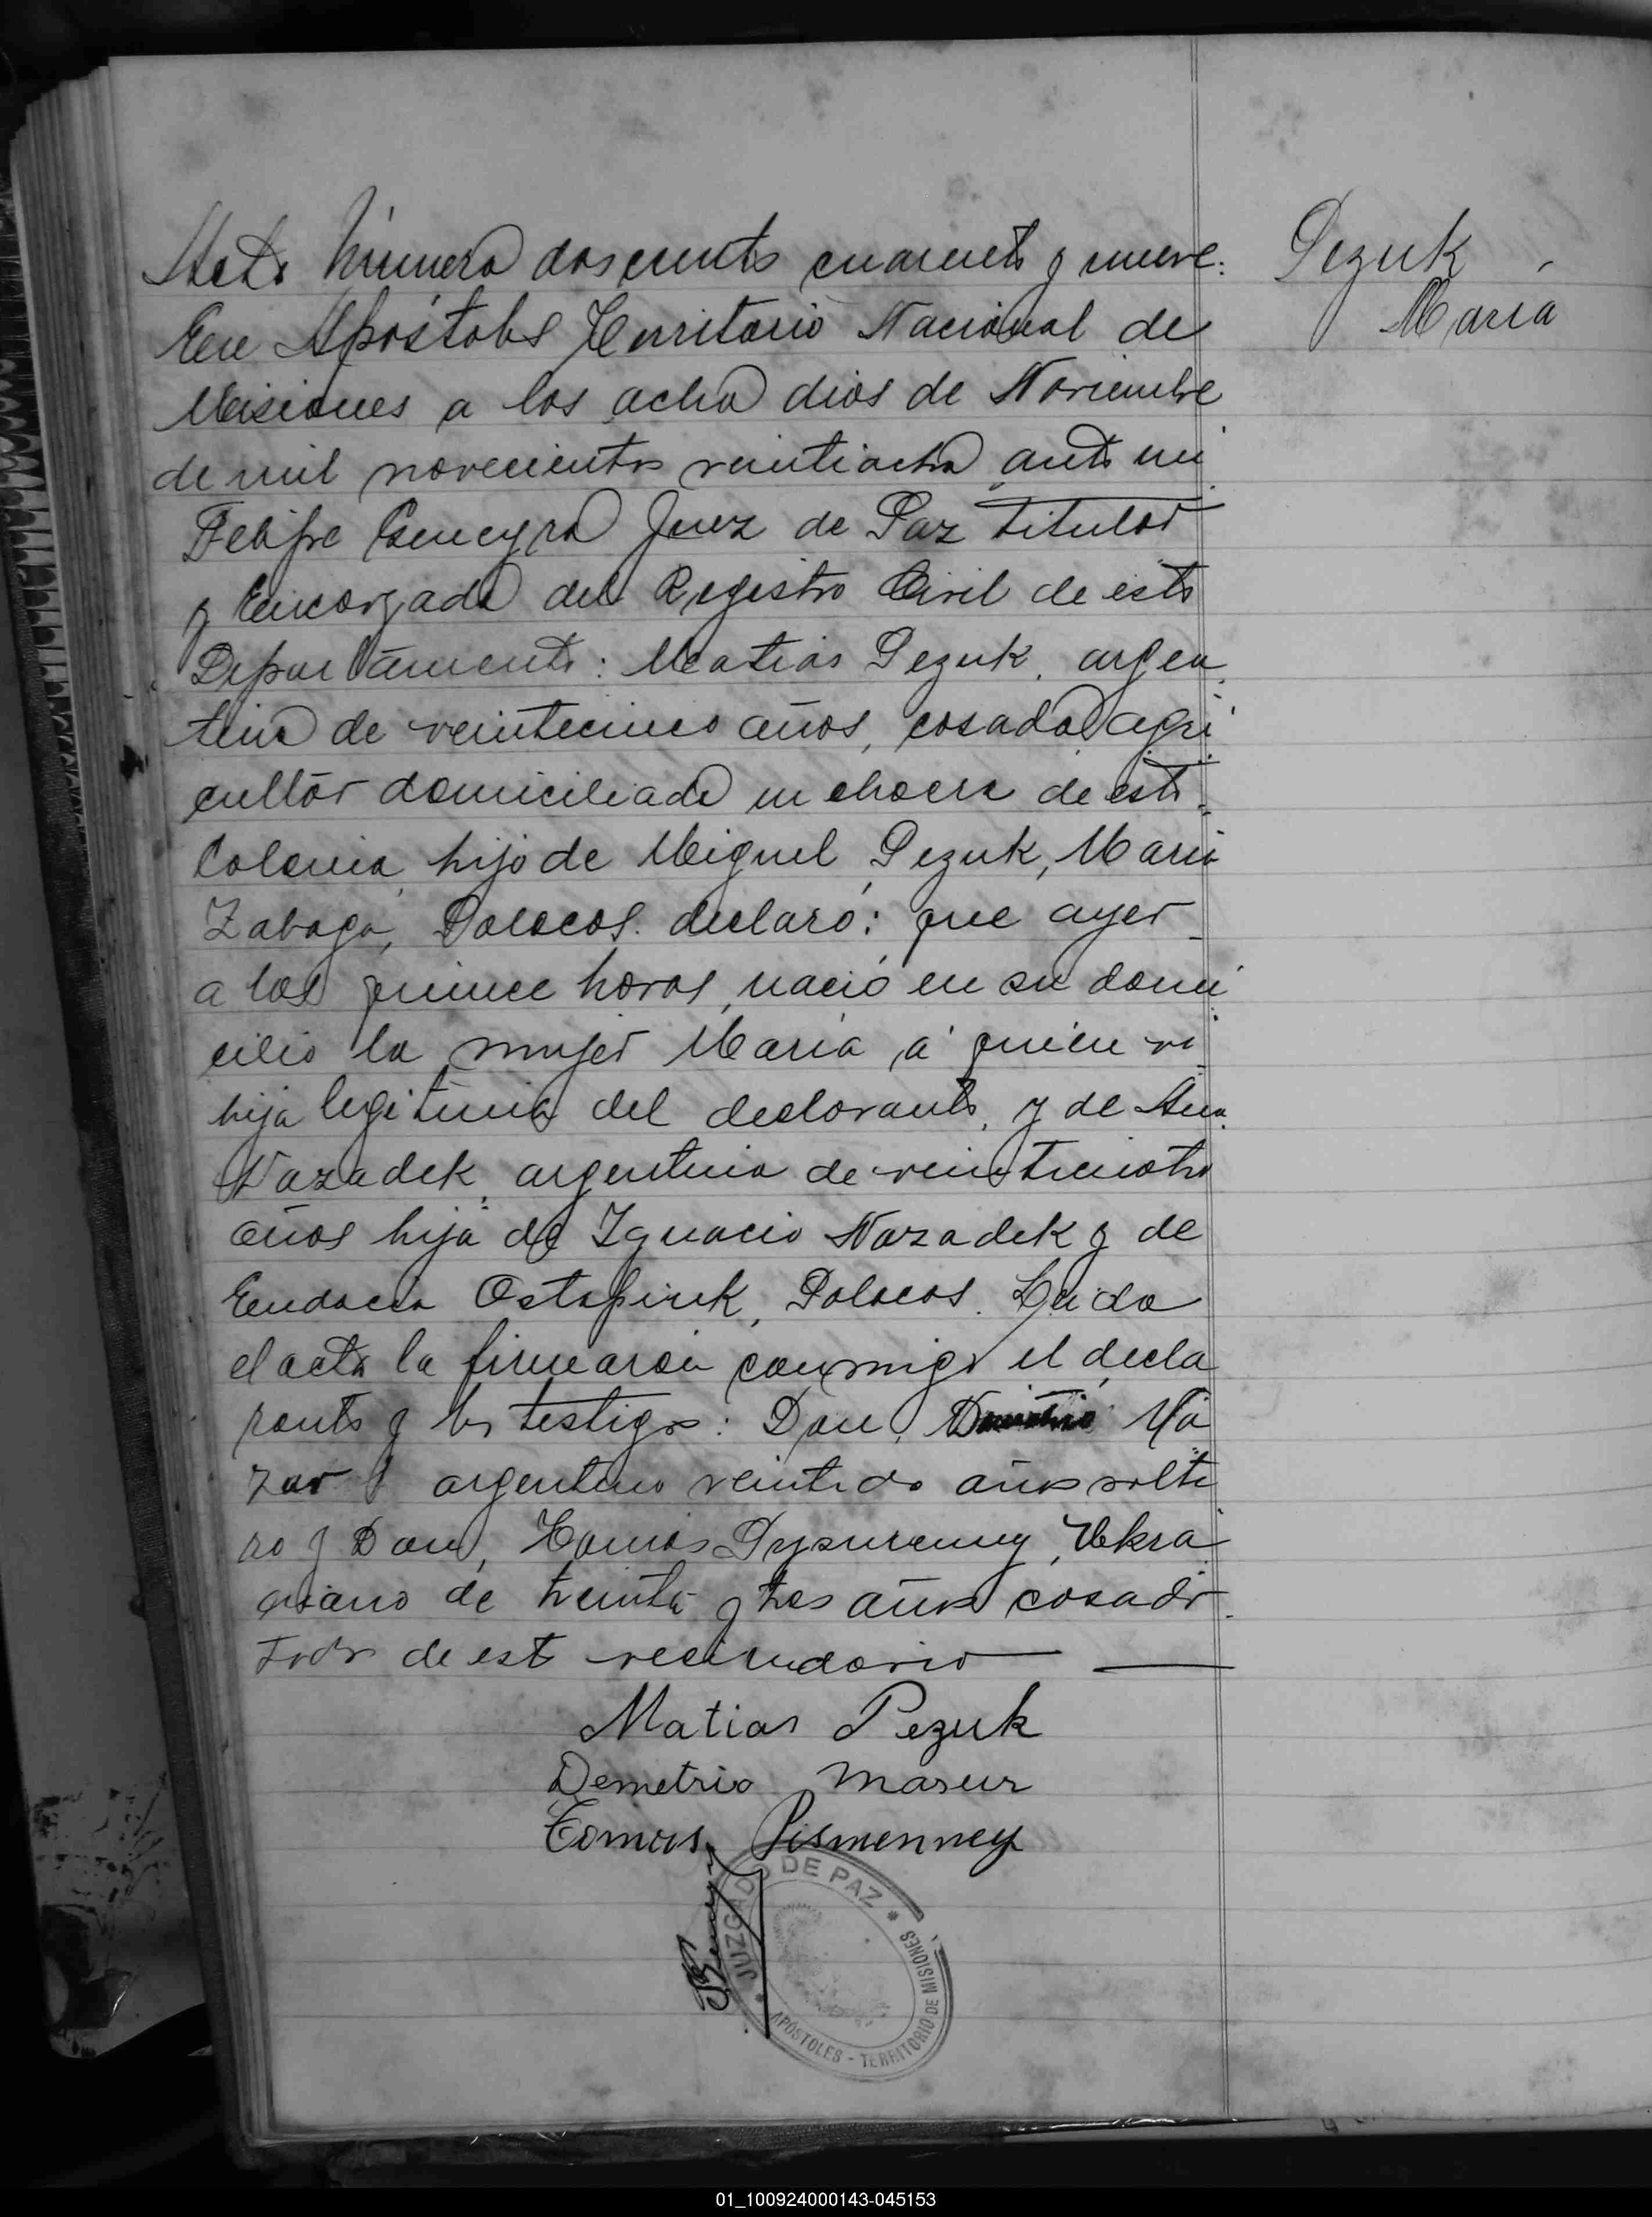 Acta Número doscientos cuarenta y nueve:
En Apóstoles Territorio Nacional de
Misiones a los ocho dias de Noviembre
de mil novecientos veintiocho ante mi
Felipe Juez de Paz titular
y Encargado del Registro Civil de este
Departamento: Matias Pezuk, argen
tino de veintecinco años, casado agri
cultor domiciliado en chacra de esta
Colonia, hijo de Miguel Pezuk, Maria
Zabaga, Polacos. declaró: que ayer
a las quince horas, nació en su domi
cilio la mujer Maria á quien vi
hija legitima del declarante, y de Ana
Nazadek, argentina de veinticuatro
años hija de Ignacio Nazadek y de
Eudocia Ostapiuk, Polacos. Leida
el acta la firmaron conmigo el decla
rante y los testigos: Don, Ma
zur argentino veintido años solte
ro y Don, Tomas Ukra
niano de treinta y tres años casado
todos de este vecindario
Matias Pezuk
Demetrio Masur
Tomas Pismenney
Pezuk
Maria
JUZGADO DE PAZ
APÓSTOLES - TERRITORIO DE MISIONES
01_100924000143-045153